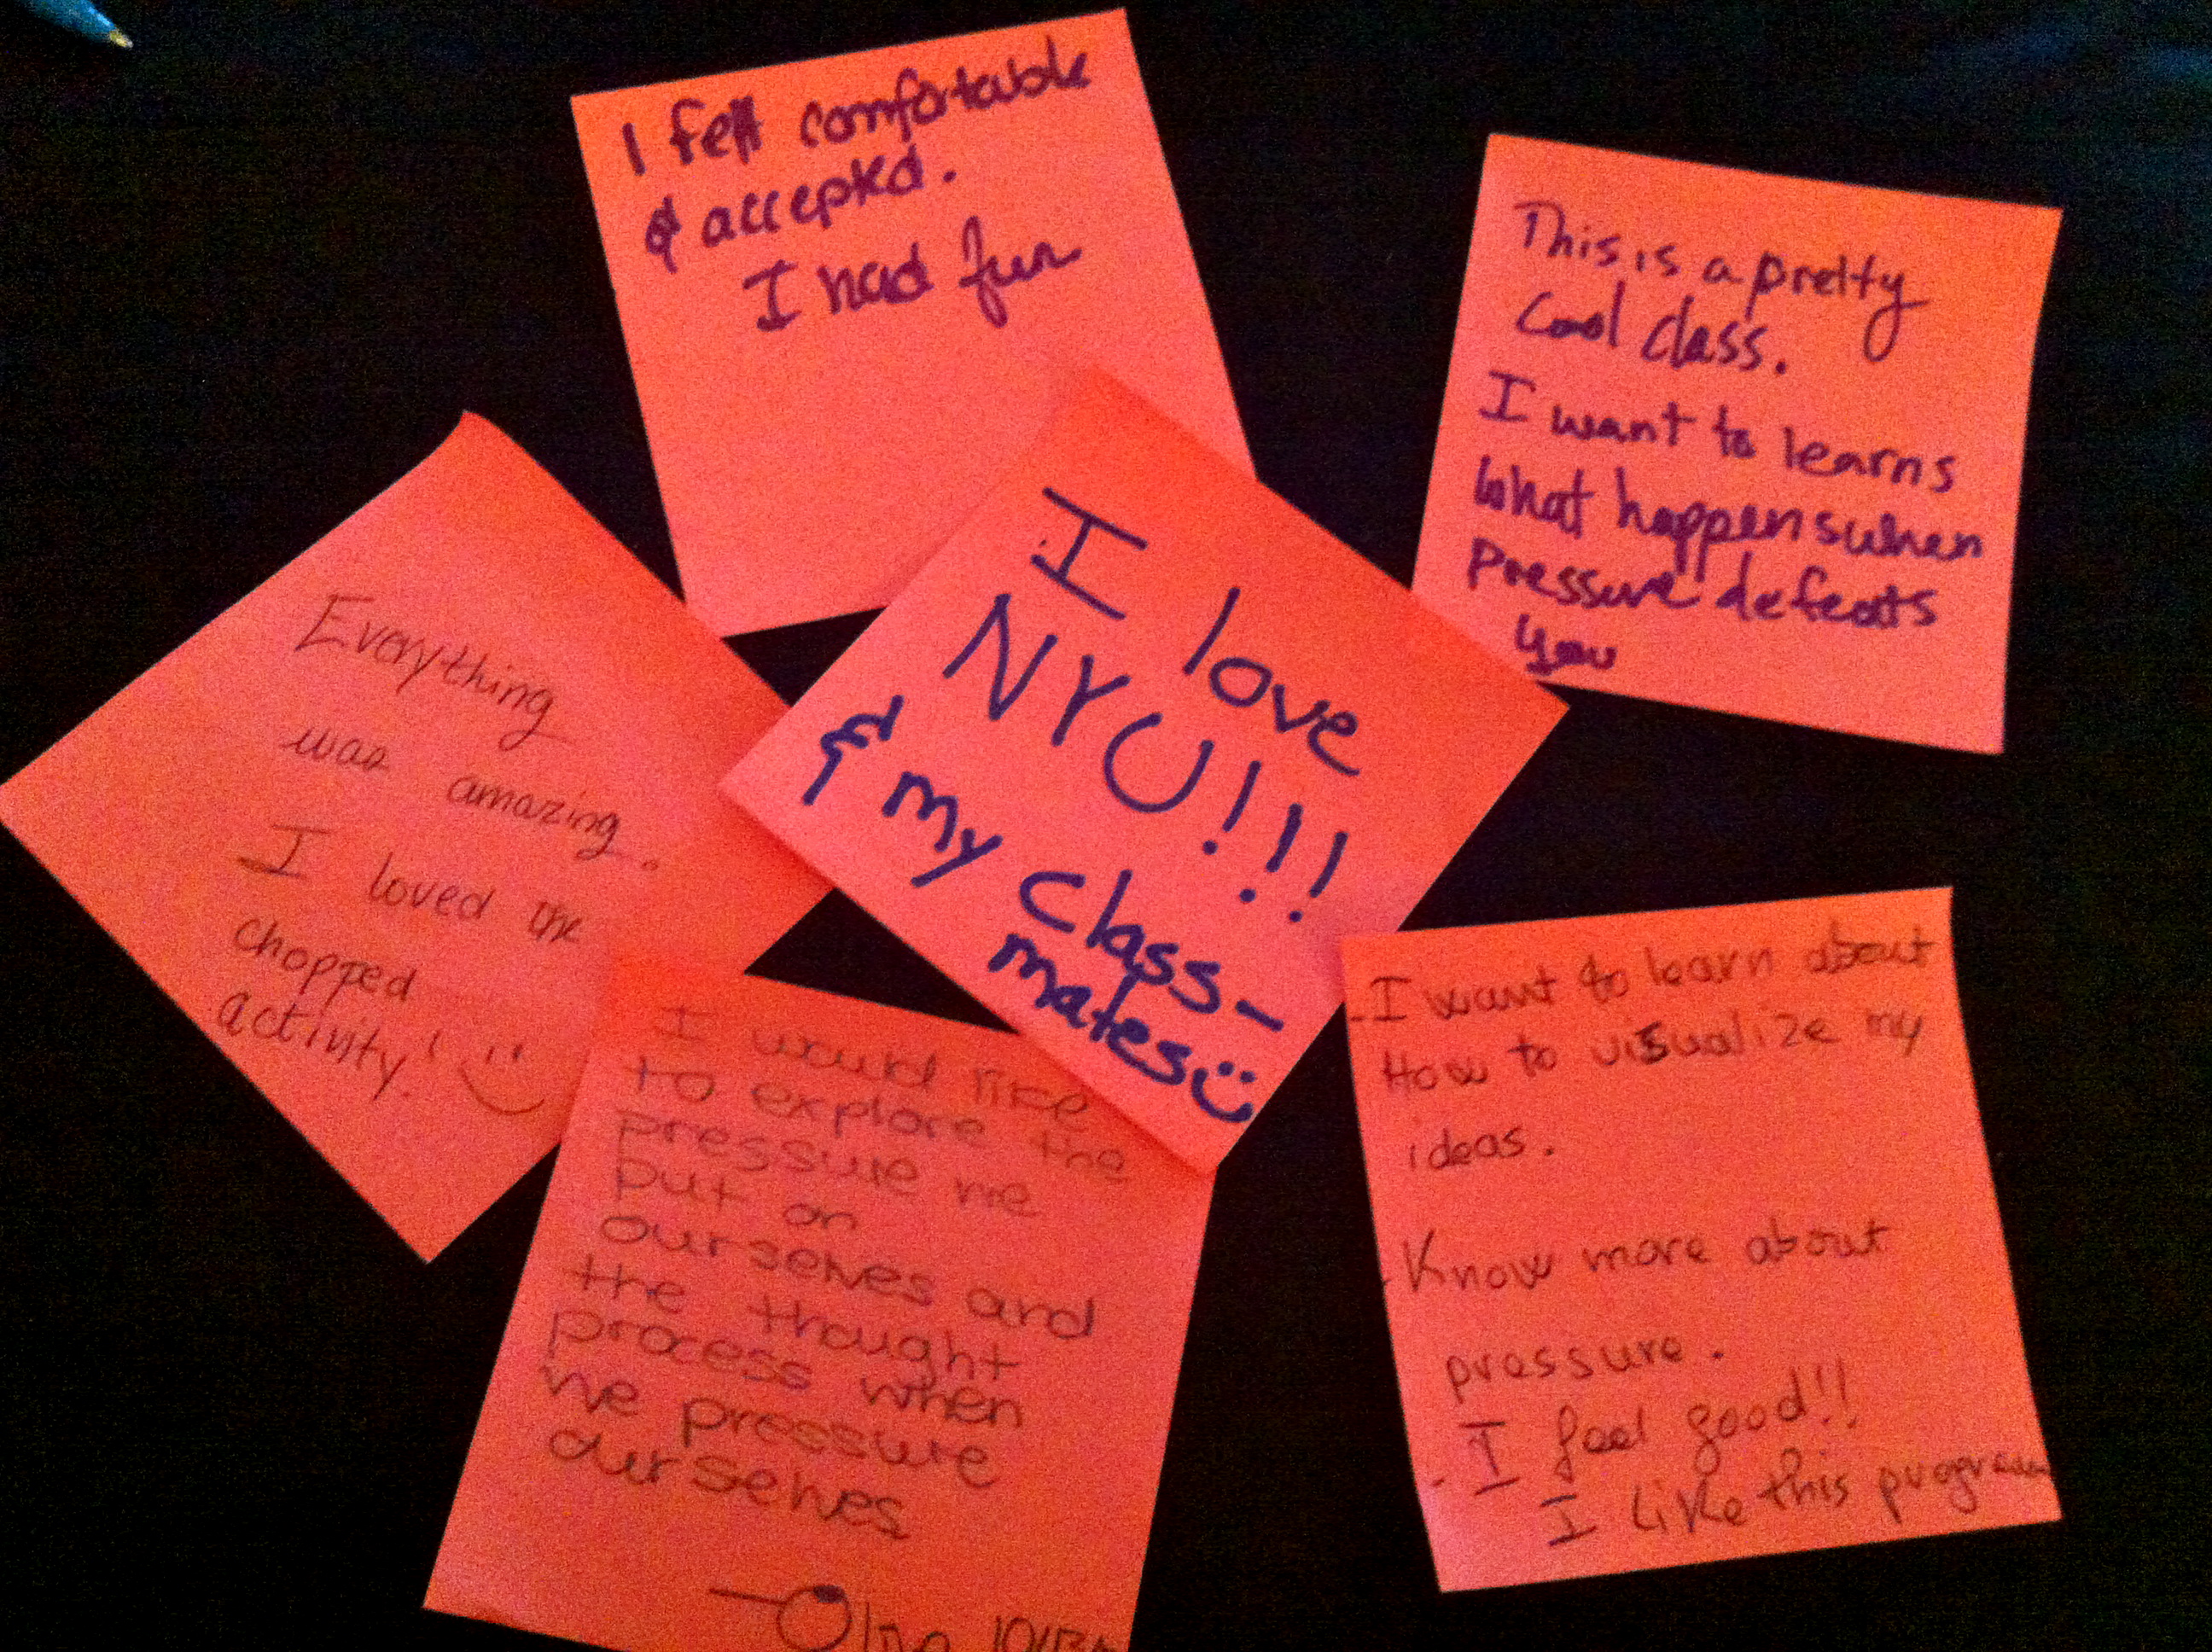 I felt comfortable
& accepted.
I had fun
This is a pretty
Cool class.
I want to learns
What happens when
pressure defeats
you
Everything
was amazing.
I loved the
chopped
activity! :)
I love
NYU!!!
& my class-
mates :)
I would like
to explore the
pressure we
put on
ourselves and
the thought
process when
we pressure
ourselves
- I want to learn about
How to visualize my
ideas.
- Know more about
pressure.
- I feel good!!
I like this program